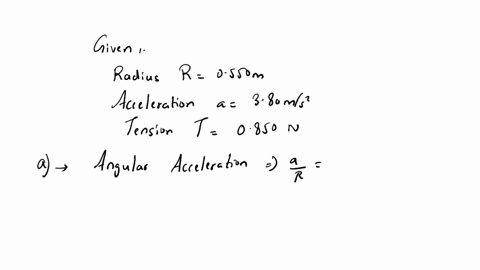 Given :.
Radius R = 0.550m
Acceleration a = 3.80 m/s²
Tension T = 0.850 N
a) → Angular Acceleration ⇒ a/R =